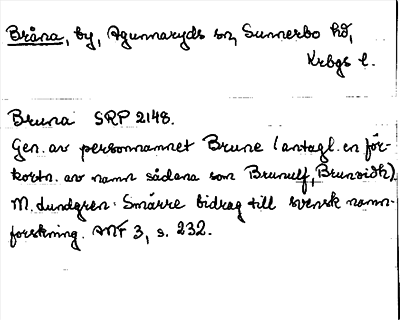 Bråna, by, Agunnaryds sn, Sunnerbo hd,
Krbgs l.
Bruna SRP 2148.
Gen. av personnamnet Brune (antagl. en för-
kortn. av namn sådana som Brunulf, Brunvidh).
M. Lundgren: Smärre bidrag till svensk namn-
forskning. ANF 3, s. 232.